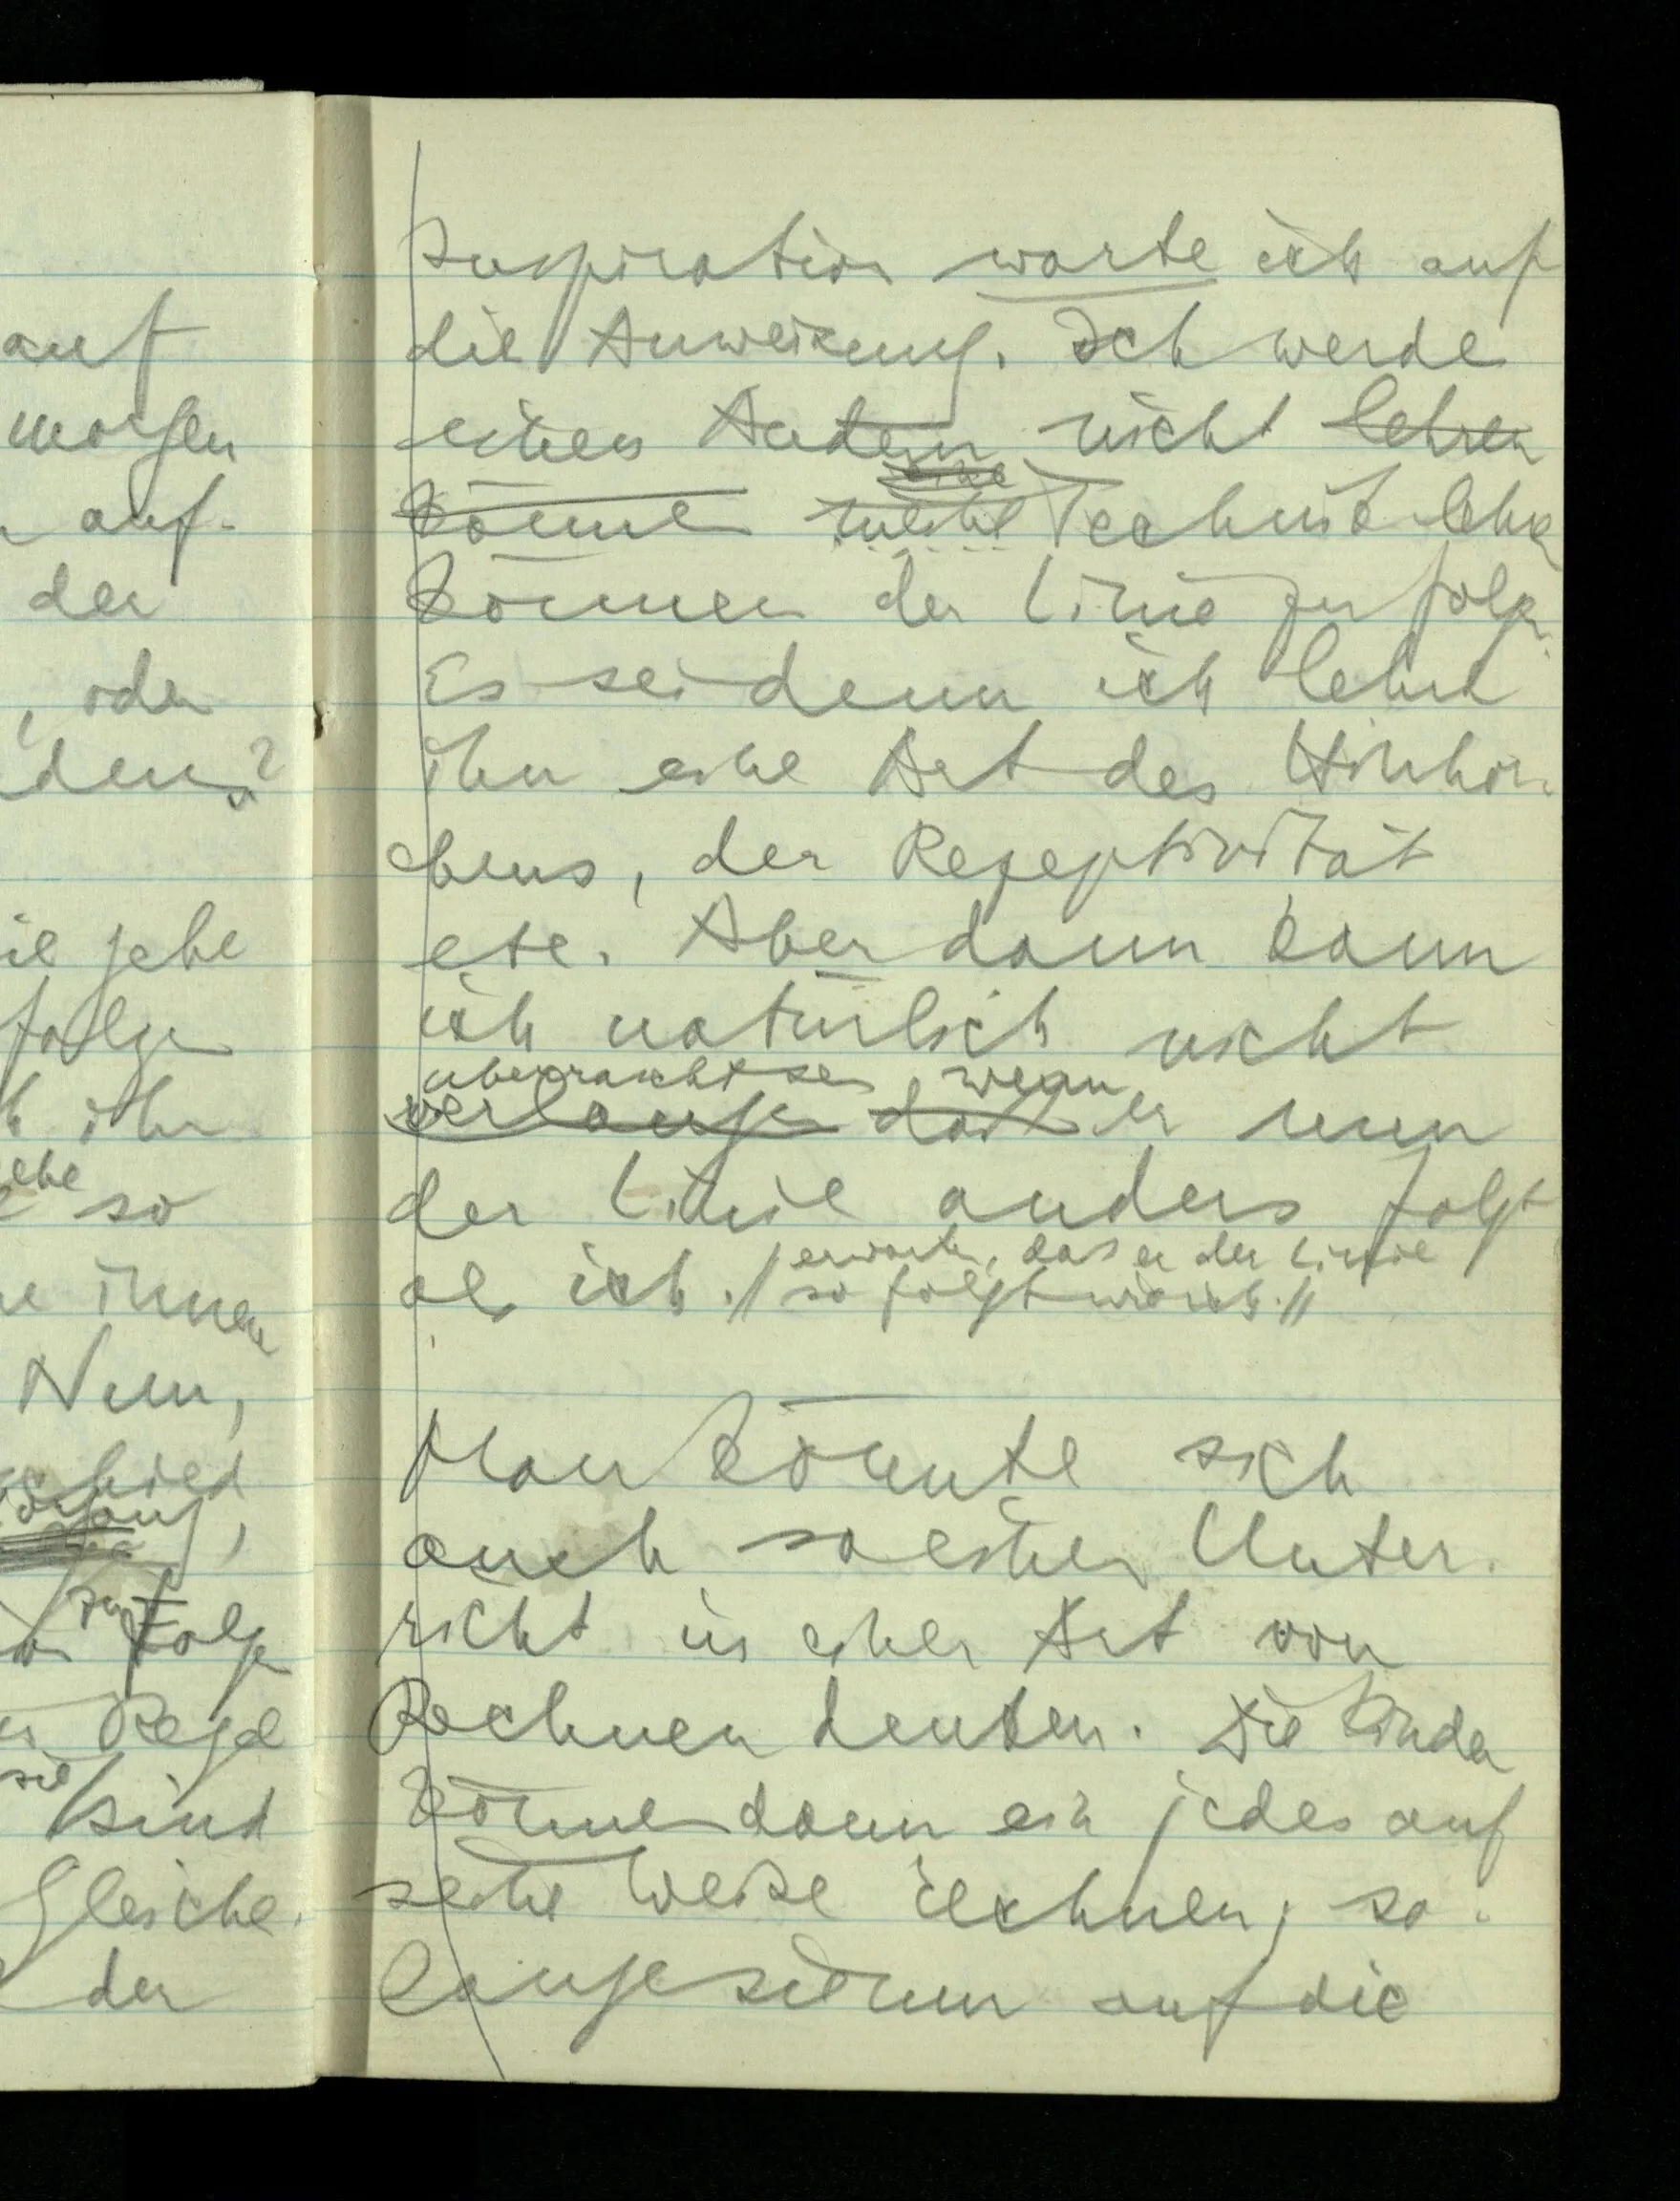 auf
morgen
auf-
der
, oder
den?
gehe
folge
ihr
ehe
so
ihnen
Nun,
zu folge
Regel
sie
sind
Gleiche.
der
Inspiration warte ich auf
die Anweisung. Ich werde
einen Andern nicht lehren
eine
könne meine Technik lehren
können der Linie zu folgen.
Es sei denn ich lehre
ihn eine Art des Hinhor-
chens, der Rezeptivität
etc. Aber dann kann
ich natürlich nicht
überrascht sein, wenn
verlangen daß er nun
der Linie anders folgt
als ich. // erwarten, daß er der Linie
so folgt wie ich. //
Man könnte sich
auch so einen Unter-
richt in einer Art von
Rechnen denken. Die Kinder
können dann ein jedes auf
seine Weise rechnen; so-
lange sie nur auf die